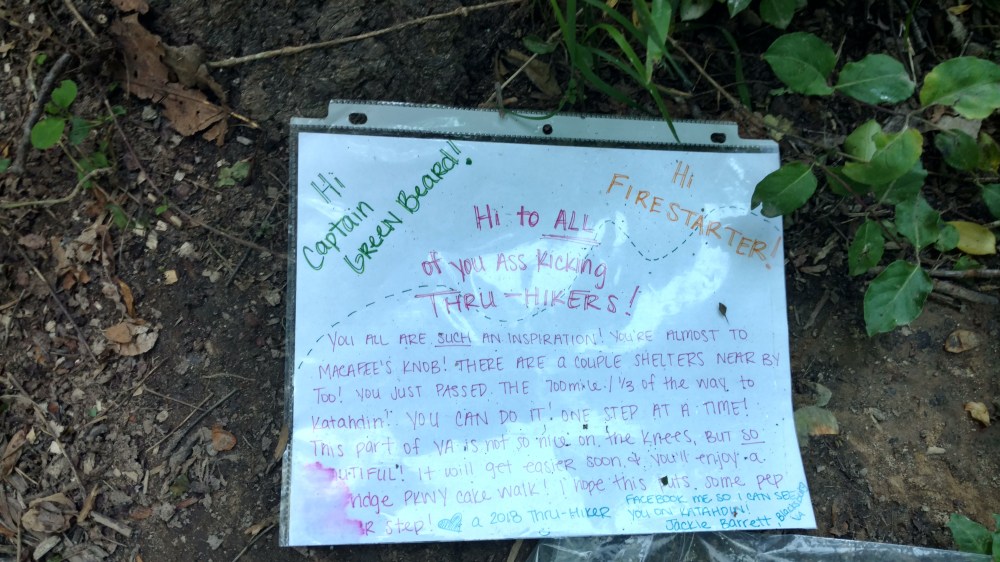 Hi
Captain
Green Beard!
Hi
FIRESTARTER!
Hi to ALL
of you Ass Kicking
THRU-HIKERS!
YOU ALL ARE SUCH AN INSPIRATION! YOU'RE ALMOST TO
MACAFEE'S KNOB! THERE ARE A COUPLE SHELTERS NEAR BY
TOO! YOU JUST PASSED THE 700mile/1/3 of the way to
Katahdin! YOU CAN DO IT! ONE STEP AT A TIME!
This part of VA is not so nice on the knees, BUT SO
UTIFUL! It will get easier soon & you'll enjoy a
idge PKWY cake walk! I hope this puts some pep
r step! a 2018 THRU-HIKER
FACEBOOK ME SO I CAN SEE
YOU ON KATAHDIN!
Jackie Barrett